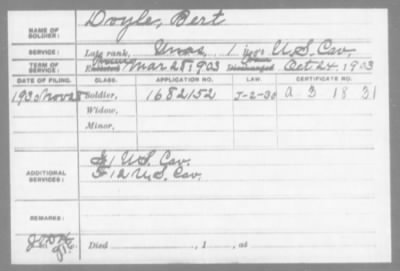 NAME OF SOLDIER: Doyle, Bert
SERVICE: Late rank, Unas 1 U.S. Cav.
TERM OF SERVICE: Enlisted Mar 28, 1903 Discharged Oct 24, 1903
DATE OF FILING. CLASS. APPLICATION NO. LAW. CERTIFICATE NO.
1930 Nov 28 Soldier, 1682152 J-2-30 A 3 18 31
Widow,
Minor,
ADDITIONAL SERVICES: G 1 U.S. Cav.
F 12 U.S. Cav.
REMARKS:
Died , 1 , at